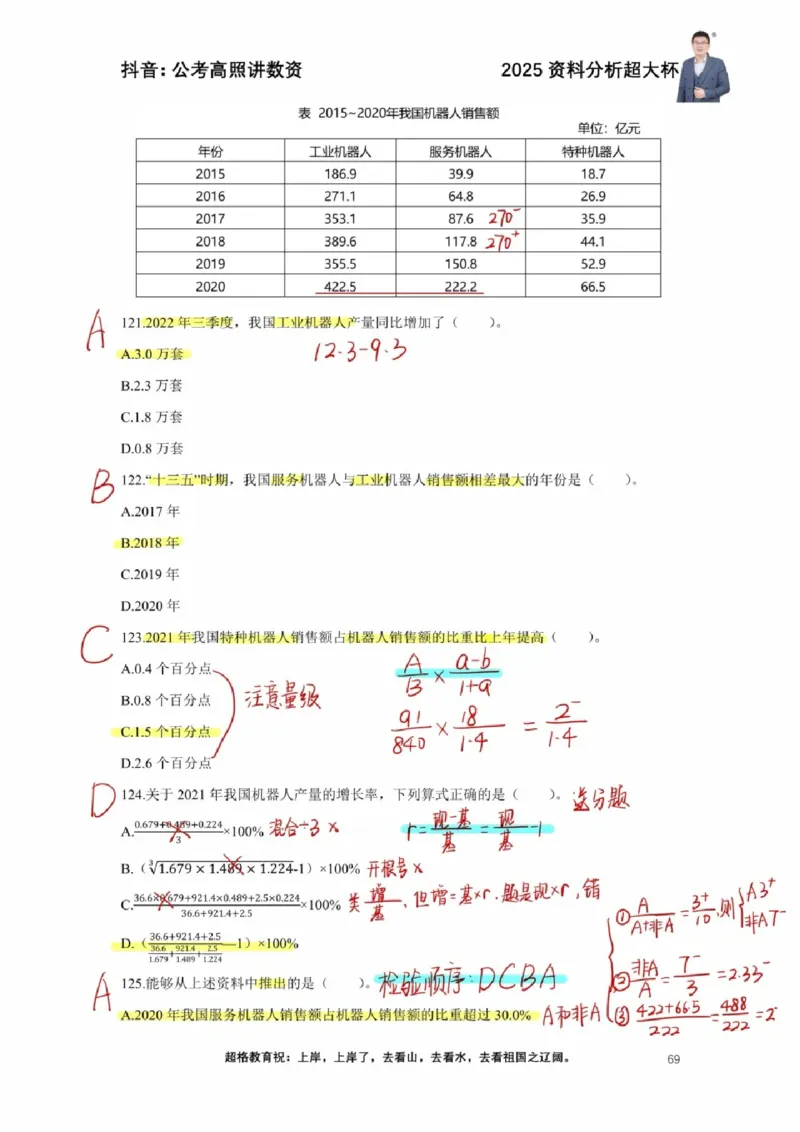 抖音：公考高照讲数资 2025 资料分析超大杯
表 2015~2020年我国机器人销售额
单位：亿元
年份 工业机器人 服务机器人 特种机器人
2015 186.9 39.9 18.7
2016 271.1 64.8 26.9
2017 353.1 87.6 270⁻ 35.9
2018 389.6 117.8 270⁺ 44.1
2019 355.5 150.8 52.9
2020 422.5 222.2 66.5
A 121.2022 年三季度，我国工业机器人产量同比增加了（ ）。
A.3.0 万套 12.3-9.3
B.2.3 万套
C.1.8 万套
D.0.8 万套
B 122.“十三五”时期，我国服务机器人与工业机器人销售额相差最大的年份是（ ）。
A.2017 年
B.2018 年
C.2019 年
D.2020 年
C 123.2021 年我国特种机器人销售额占机器人销售额的比重比上年提高（ ）。
A.0.4 个百分点 A/B × (a-b)/(1+a)
B.0.8 个百分点 注意量级
C.1.5 个百分点 91/840 × 18/1.4 = 2⁻/1.4
D.2.6 个百分点
D 124.关于 2021 年我国机器人产量的增长率，下列算式正确的是（ ）。送分题
A.(0.679+0.489+0.224)/3×100% 混合÷3 × r=(现-基)/基=现/基-1
B.（∛1.679 × 1.489 × 1.224-1）×100% 开根号×
C.(36.6×0.679+921.4×0.489+2.5×0.224)/(36.6+921.4+2.5)×100% 类 增/基，但增=基×r，题是现×r，错
D.（(36.6+921.4+2.5)/(36.6/1.679+921.4/1.489+2.5/1.224)—1）×100%
① A/(A+非A)=3⁺/10，则{A3⁺ 非A7⁻
② 非A/A=7⁻/3=2.33⁻
A 125.能够从上述资料中推出的是（ ）。检验顺序：DCBA
A.2020 年我国服务机器人销售额占机器人销售额的比重超过 30.0% A和非A
③ (422+66.5)/222=488/222=2⁺
超格教育祝：上岸，上岸了，去看山，去看水，去看祖国之辽阔。 69